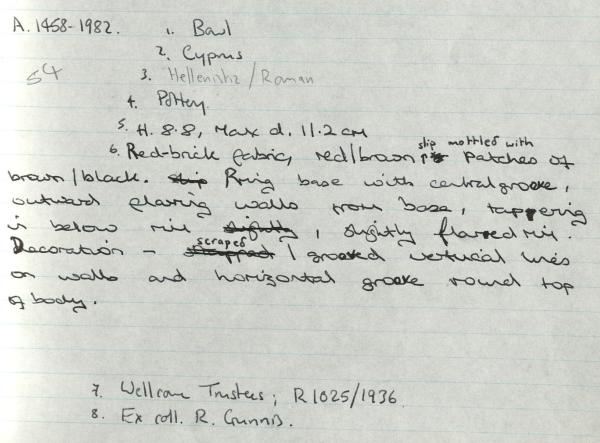 A.1458-1982. 1. Bowl
2. Cyprus
54
3. Hellenistic/Roman
4. Pottery.
5. H. 8.8, Max d. 11.2 cm
slip mottled with
6. Red-brick fabric, red/brown patches of
brown/black. slip Ring base with central groove,
outward flaring walls from base, tappering
in below rim slightly, slightly flared rim.
scraped
Decoration - scrapped / grooved vertical lines
on walls and horizontal groove round top
of body.
7. Wellcome Trustees; R1025/1936.
8. Ex coll. R. Gunnis.